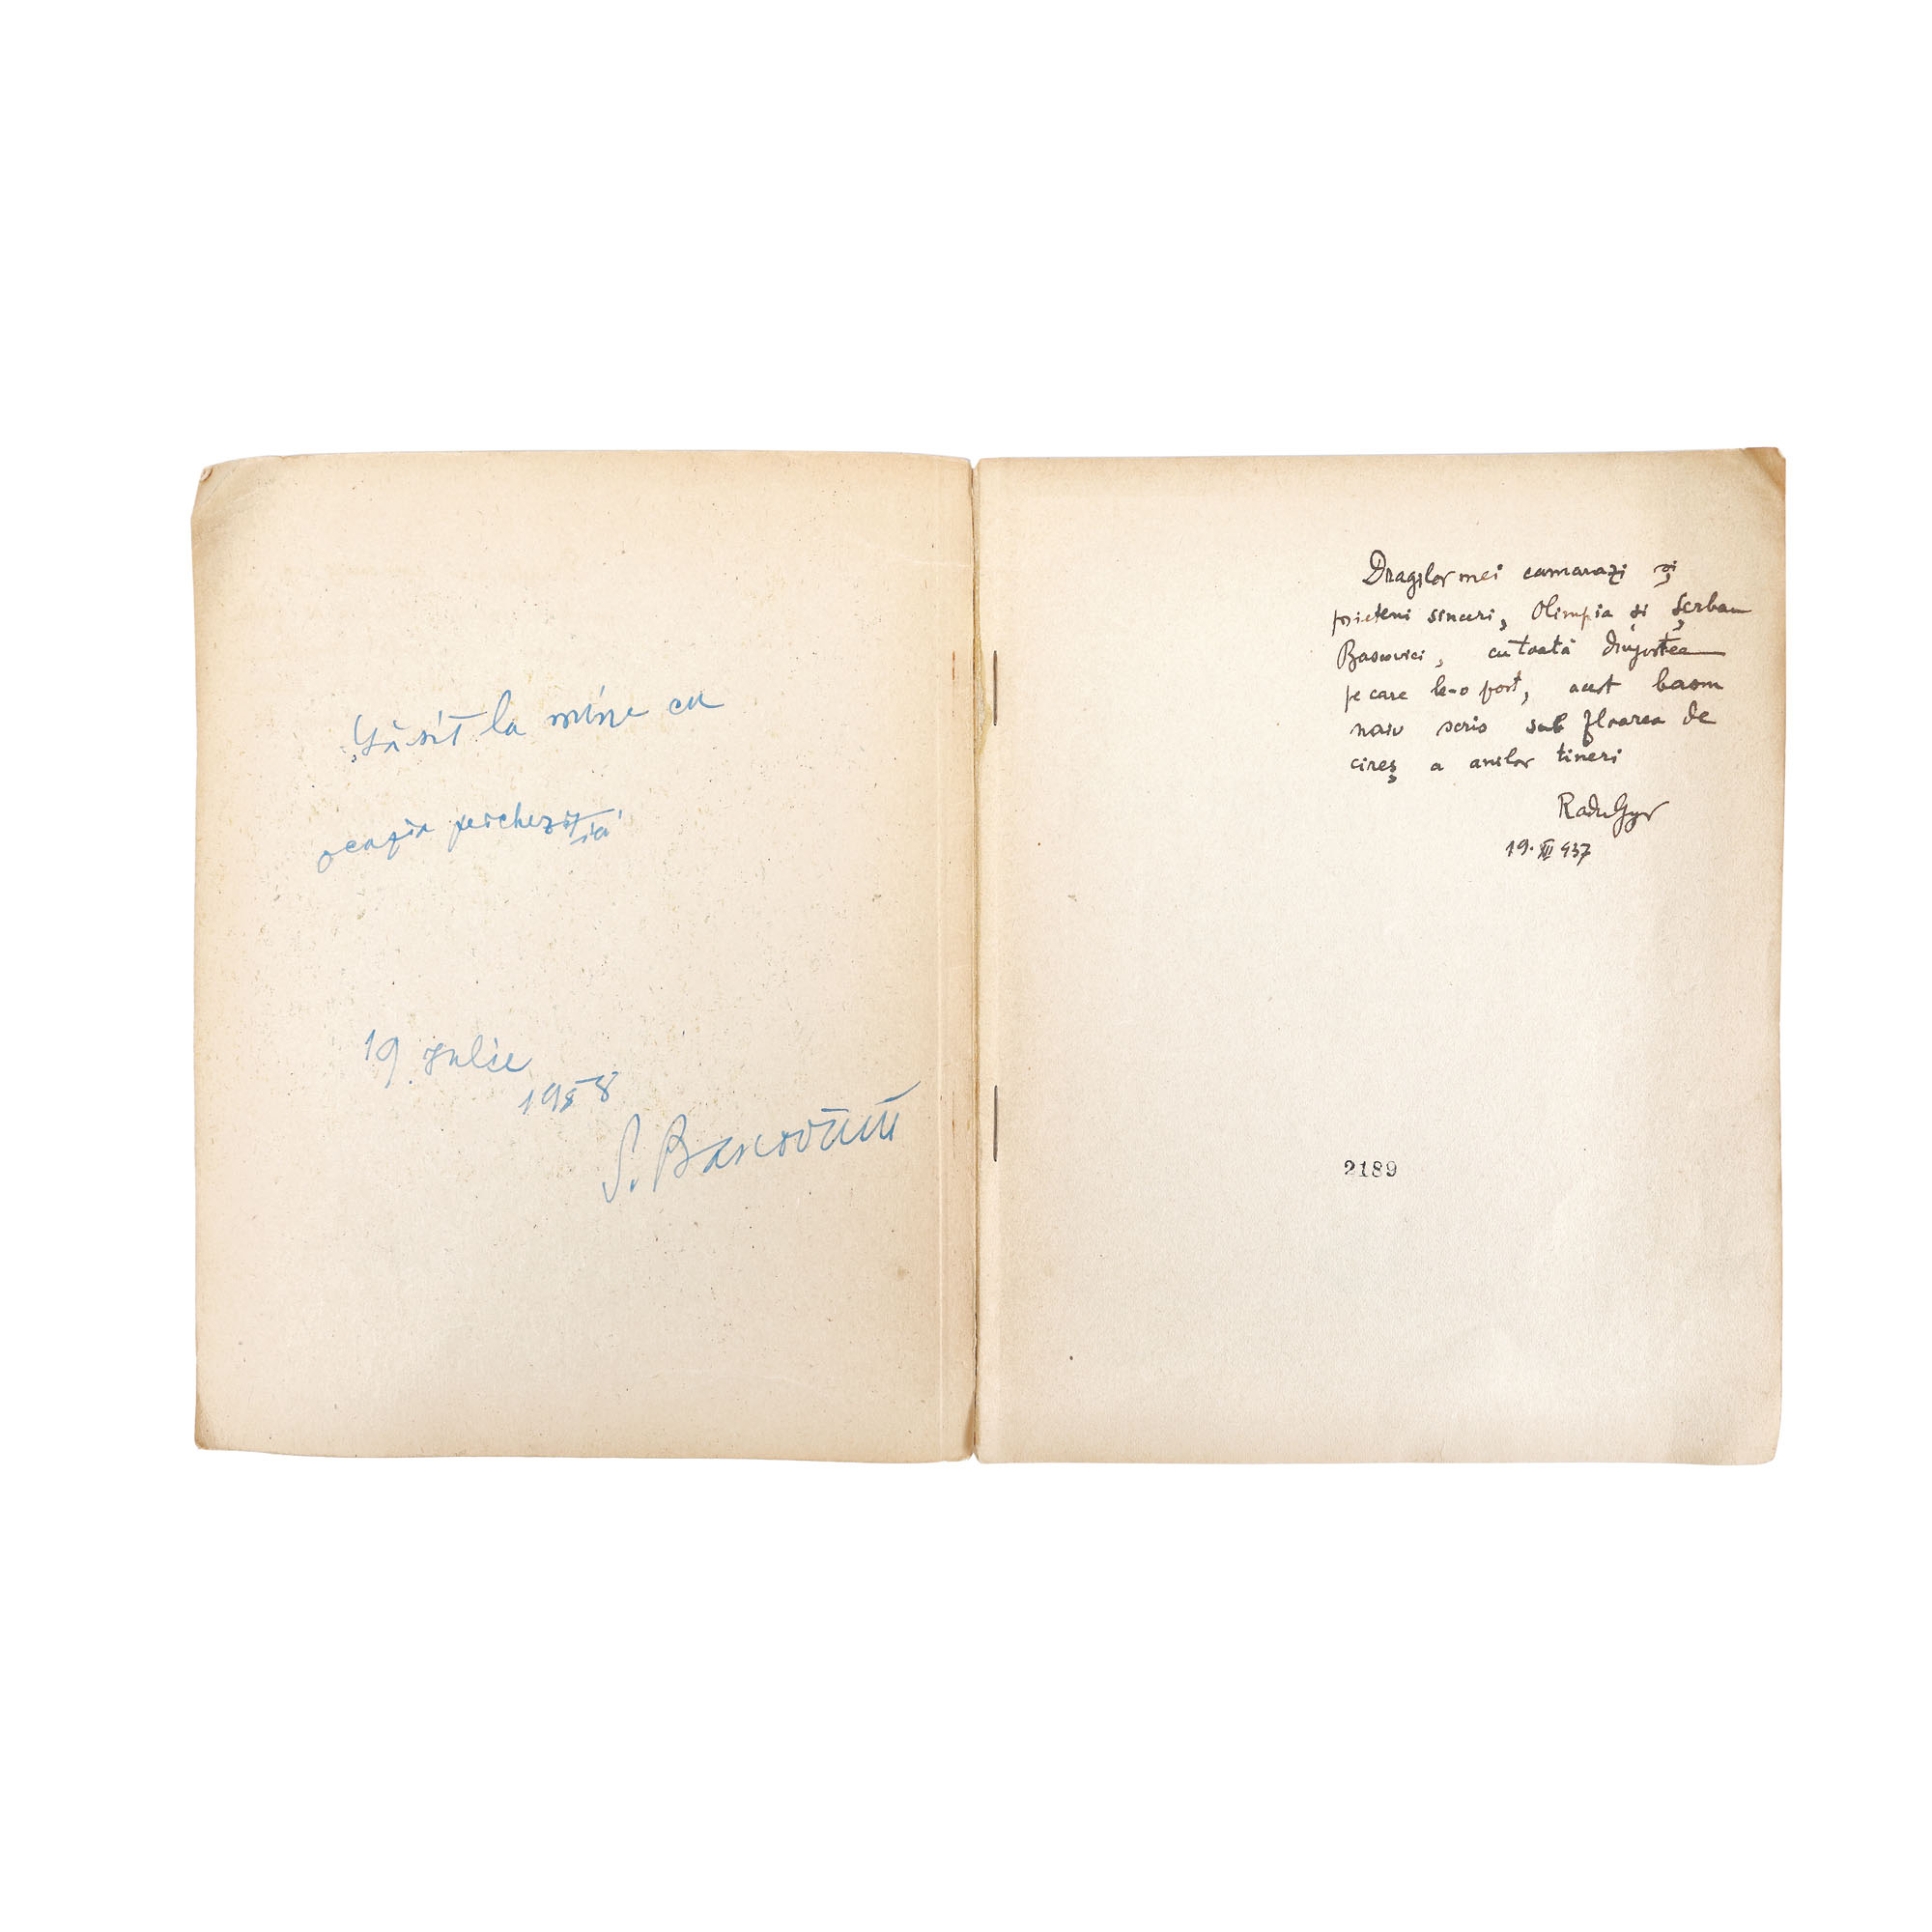 Găsit la mine cu
ocazia percheziției
19 Iulie
1958
S. Bascovici
Dragilor mei camarazi și
prieteni sinceri, Olimpia și Șerban
Bascovici, cu toată dragostea
pe care le-o port, acest basm
naiv scris sub floarea de
cireș a anilor tineri
Radu Gyr
19. XII 937
2189